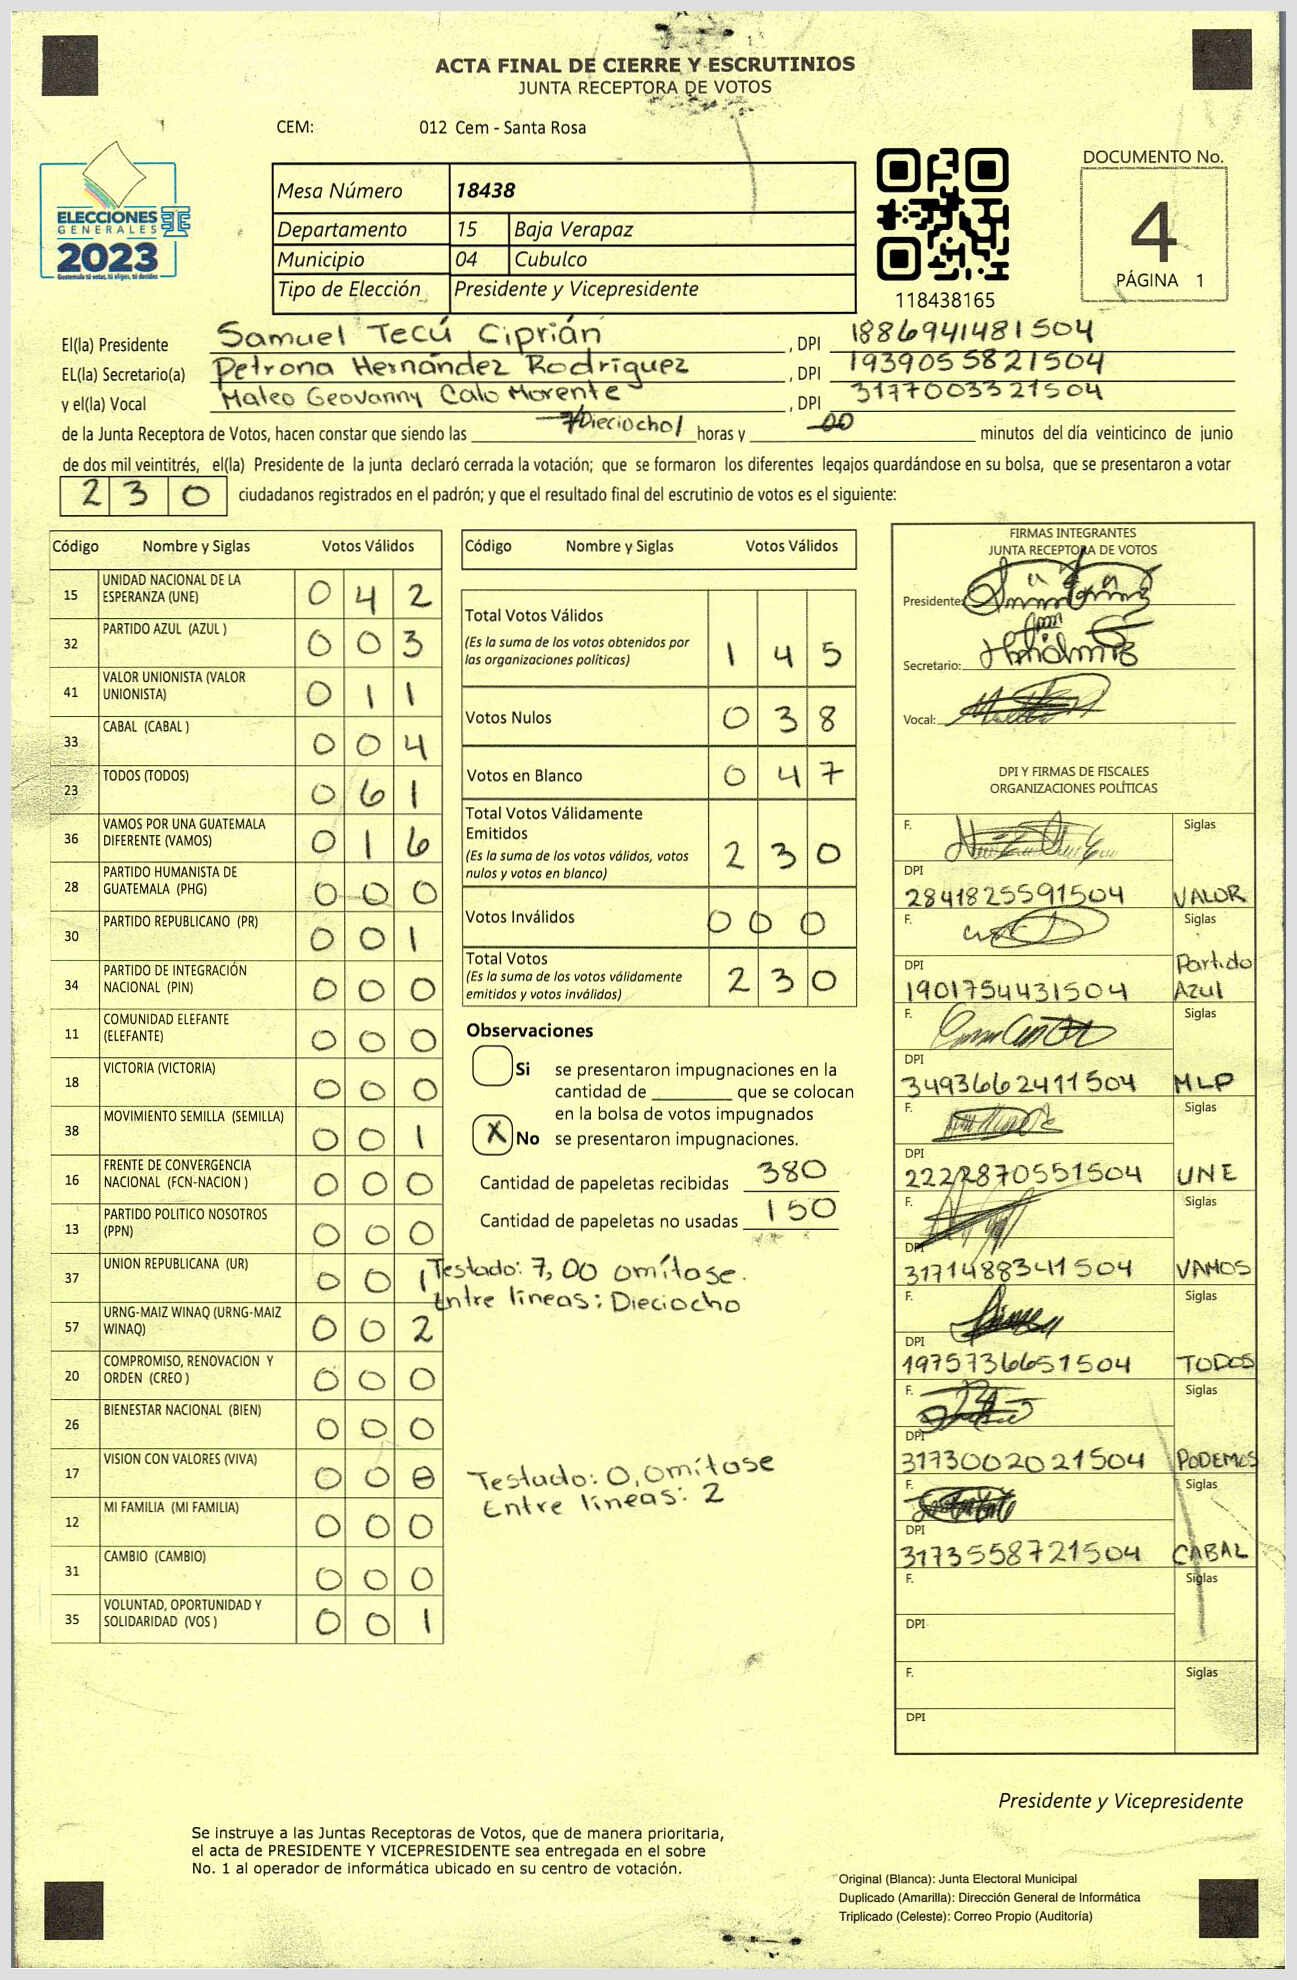 ACTA FINAL DE CIERRE Y ESCRUTINIOS
JUNTA RECEPTORA DE VOTOS
CEM: 012 Cem - Santa Rosa
ELECCIONES
GENERALES
2023
Guatemala tú votas, tú eliges, tú decides
Mesa Número 18438
Departamento 15 Baja Verapaz
Municipio 04 Cubulco
Tipo de Elección Presidente y Vicepresidente
118438165
DOCUMENTO No.
4
PÁGINA 1
El(la) Presidente Samuel Tecú Ciprián, DPI 1886941481504
EL(la) Secretario(a) Petrona Hernández Rodríguez, DPI 1939055821504
y el(la) Vocal Mateo Geovanny Calo Morente, DPI 3177003321504
de la Junta Receptora de Votos, hacen constar que siendo las 7/Dieciocho/ horas y 00 minutos del día veinticinco de junio
de dos mil veintitrés, el(la) Presidente de la junta declaró cerrada la votación; que se formaron los diferentes legajos quardándose en su bolsa, que se presentaron a votar
230 ciudadanos registrados en el padrón; y que el resultado final del escrutinio de votos es el siguiente:
Código Nombre y Siglas Votos Válidos
15 UNIDAD NACIONAL DE LA ESPERANZA (UNE) 0 4 2
32 PARTIDO AZUL (AZUL ) 0 0 3
41 VALOR UNIONISTA (VALOR UNIONISTA) 0 1 1
33 CABAL (CABAL ) 0 0 4
23 TODOS (TODOS) 0 6 1
36 VAMOS POR UNA GUATEMALA DIFERENTE (VAMOS) 0 1 6
28 PARTIDO HUMANISTA DE GUATEMALA (PHG) 0 0 0
30 PARTIDO REPUBLICANO (PR) 0 0 1
34 PARTIDO DE INTEGRACIÓN NACIONAL (PIN) 0 0 0
11 COMUNIDAD ELEFANTE (ELEFANTE) 0 0 0
18 VICTORIA (VICTORIA) 0 0 0
38 MOVIMIENTO SEMILLA (SEMILLA) 0 0 1
16 FRENTE DE CONVERGENCIA NACIONAL (FCN-NACION ) 0 0 0
13 PARTIDO POLITICO NOSOTROS (PPN) 0 0 0
37 UNION REPUBLICANA (UR) 0 0 1
57 URNG-MAIZ WINAQ (URNG-MAIZ WINAQ) 0 0 2
20 COMPROMISO, RENOVACION Y ORDEN (CREO ) 0 0 0
26 BIENESTAR NACIONAL (BIEN) 0 0 0
17 VISION CON VALORES (VIVA) 0 0 0
12 MI FAMILIA (MI FAMILIA) 0 0 0
31 CAMBIO (CAMBIO) 0 0 0
35 VOLUNTAD, OPORTUNIDAD Y SOLIDARIDAD (VOS ) 0 0 1
Código Nombre y Siglas Votos Válidos
Total Votos Válidos 1 4 5
(Es la suma de los votos obtenidos por
las organizaciones politicas)
Votos Nulos 0 3 8
Votos en Blanco 0 4 7
Total Votos Válidamente
Emitidos 2 3 0
(Es la suma de los votos válidos, votos
nulos y votos en blanco)
Votos Inválidos 0 0 0
Total Votos 2 3 0
(Es la suma de los votos válidamente
emitidos y votos inválidos)
Observaciones
Si se presentaron impugnaciones en la
cantidad de ________ que se colocan
en la bolsa de votos impugnados
X No se presentaron impugnaciones.
Cantidad de papeletas recibidas 380
Cantidad de papeletas no usadas 150
Testado: 7, 00 omítase.
Entre líneas: Dieciocho
Testado: 0, omítase
Entre líneas: 2
FIRMAS INTEGRANTES
JUNTA RECEPTORA DE VOTOS
Presidente:
Secretario:
Vocal:
DPI Y FIRMAS DE FISCALES
ORGANIZACIONES POLÍTICAS
F. Siglas
DPI
2841825591504 VALOR
F. Siglas
DPI Partido
1901754431504 Azul
F. Siglas
DPI
3493662411504 MLP
F. Siglas
DPI
2222870551504 UNE
F. Siglas
DPI
3171488341504 VAMOS
F. Siglas
DPI
1975736651504 TODOS
F. Siglas
DPI
3173002021504 PODEMOS
F. Siglas
DPI
3173558721504 CABAL
F. Siglas
DPI
F. Siglas
DPI
Presidente y Vicepresidente
Se instruye a las Juntas Receptoras de Votos, que de manera prioritaria,
el acta de PRESIDENTE Y VICEPRESIDENTE sea entregada en el sobre
No. 1 al operador de informática ubicado en su centro de votación.
Original (Blanca): Junta Electoral Municipal
Duplicado (Amarilla): Dirección General de Informática
Triplicado (Celeste): Correo Propio (Auditoría)